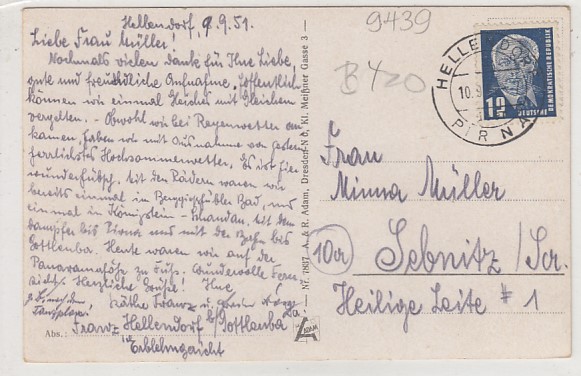 Hellendorf, 9.9.51.
Liebe Frau Müller!
Nochmals vielen Dank für Ihre liebe,
gute und freundliche Aufnahme. Hoffentlich
können wir einmal Gleiches mit Gleichem
vergelten. – Obwohl wir bei Regenwetter an
kamen, haben wir mit Ausnahme von gestern
herrlichstes Hochsommerwetter. Es ist hier
wunderhübsch. Mit den Rädern waren wir
bereits einmal in Berggießhübel Bad, und
einmal in Königstein – Schandau. Mit dem
Dampfer bis Pirna und mit der Bahn bis
Gottleuba. Heute waren wir auf der
Panoramahöhe zu Fuß. Wundervolle Fern
sicht. Herzliche Grüße! Ihre
Käthe Franz u.
Abs.: Franz Hellendorf b/Gottleuba
Erblehngericht
9439
B420
HELLENDORF
10.9
PIRNA
12
DEUTSCHE
DEMOKRATISCHE REPUBLIK
Nr. 7887 A. & R. Adam, Dresden-N 6, Kl. Meißner Gasse 3
ADAM
Frau
Minna Müller
10a Sebnitz/Sa.
Heilige Leite # 1